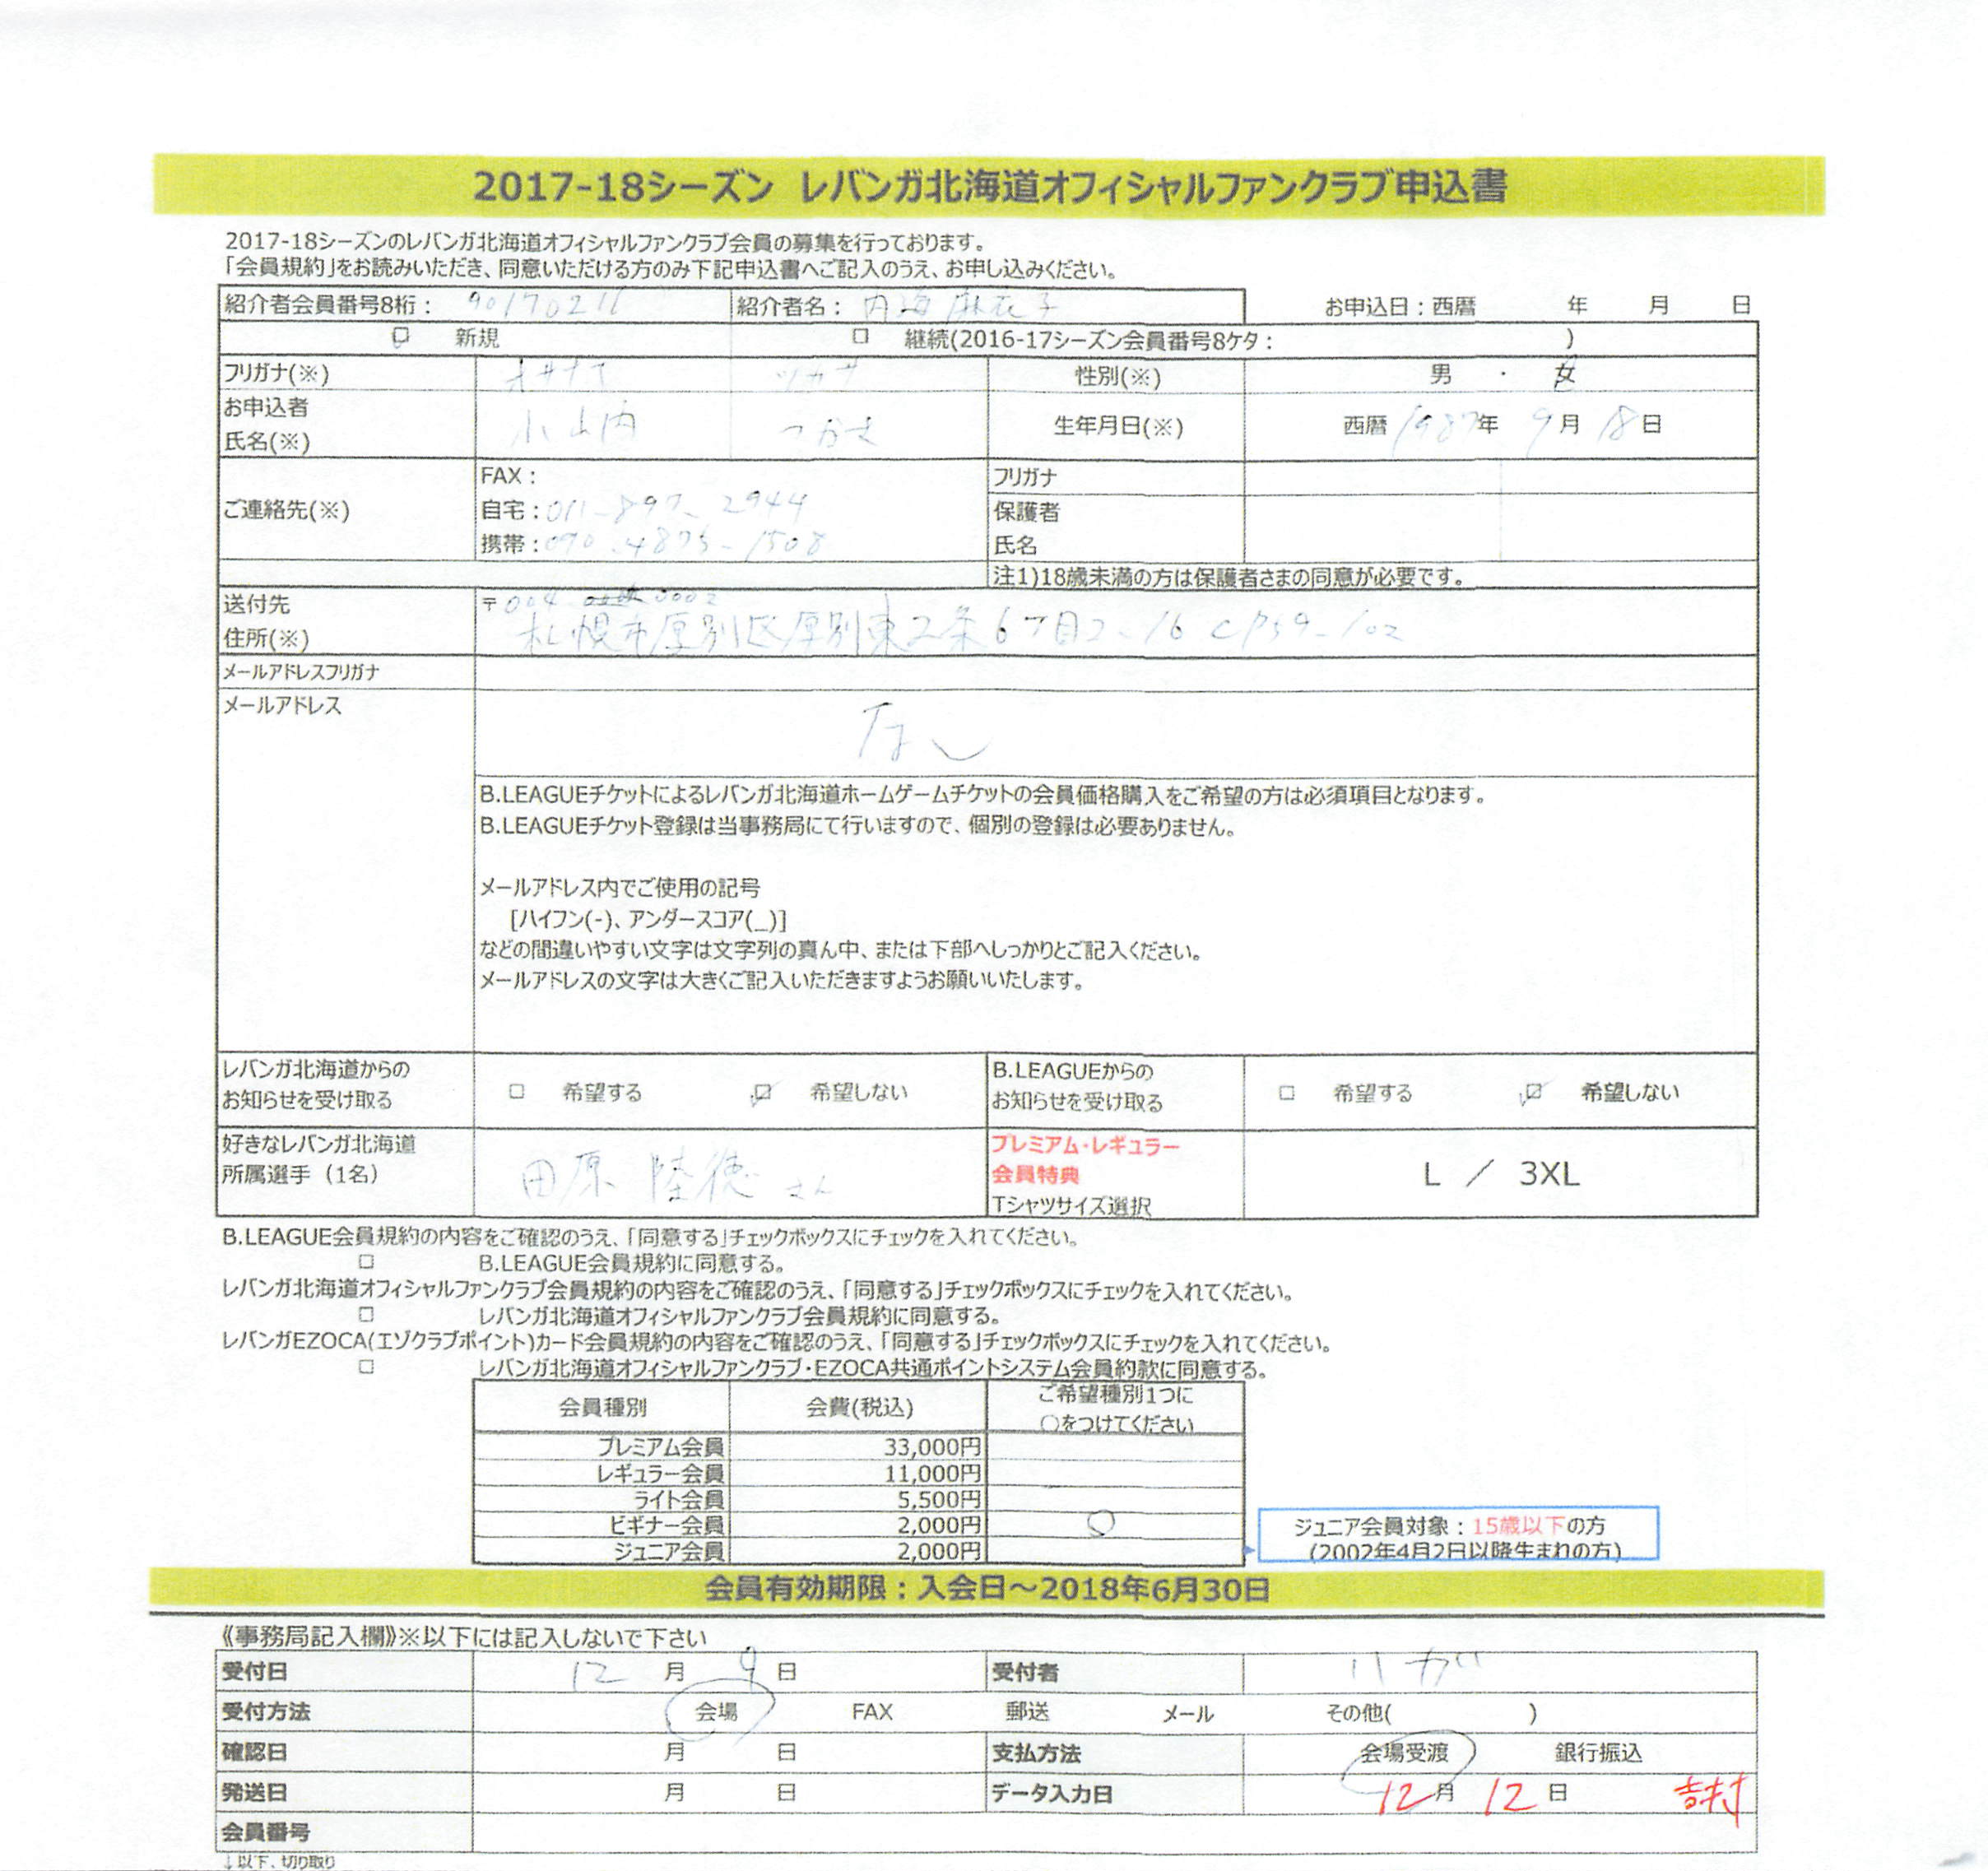 2017-18シーズン レバンガ北海道オフィシャルファンクラブ申込書
2017-18シーズンのレバンガ北海道オフィシャルファンクラブ会員の募集を行っております。
「会員規約」をお読みいただき、同意いただける方のみ下記申込書へご記入のうえ、お申し込みください。
紹介者会員番号8桁： 90170211 紹介者名： 内海 麻衣子 お申込日：西暦 年 月 日
☑ 新規 □ 継続(2016-17シーズン会員番号8ケタ： )
フリガナ(※) オサナイ ツカサ 性別(※) 男 ・ 女
お申込者
氏名(※) 小山内 つかさ 生年月日(※) 西暦 1987年 9月 18日
ご連絡先(※) FAX：
自宅：011-897-2944
携帯：090-4875-1508
フリガナ
保護者
氏名
注1)18歳未満の方は保護者さまの同意が必要です。
送付先 〒004 0002
住所(※) 札幌市厚別区厚別東2条6丁目2-16
メールアドレスフリガナ
メールアドレス なし
B.LEAGUEチケットによるレバンガ北海道ホームゲームチケットの会員価格購入をご希望の方は必須項目となります。
B.LEAGUEチケット登録は当事務局にて行いますので、個別の登録は必要ありません。
メールアドレス内でご使用の記号
[ハイフン(-)、アンダースコア(_)]
などの間違いやすい文字は文字列の真ん中、または下部へしっかりとご記入ください。
メールアドレスの文字は大きくご記入いただきますようお願いいたします。
レバンガ北海道からの
お知らせを受け取る □ 希望する ☑ 希望しない
B.LEAGUEからの
お知らせを受け取る □ 希望する ☑ 希望しない
好きなレバンガ北海道
所属選手（1名） 田原 陸徳 さん
プレミアム・レギュラー
会員特典
Tシャツサイズ選択 L ／ 3XL
B.LEAGUE会員規約の内容をご確認のうえ、「同意する」チェックボックスにチェックを入れてください。
□ B.LEAGUE会員規約に同意する。
レバンガ北海道オフィシャルファンクラブ会員規約の内容をご確認のうえ、「同意する」チェックボックスにチェックを入れてください。
□ レバンガ北海道オフィシャルファンクラブ会員規約に同意する。
レバンガEZOCA(エゾクラブポイント)カード会員規約の内容をご確認のうえ、「同意する」チェックボックスにチェックを入れてください。
□ レバンガ北海道オフィシャルファンクラブ・EZOCA共通ポイントシステム会員約款に同意する。
会員種別 会費(税込) ご希望種別1つに
○をつけてください
プレミアム会員 33,000円
レギュラー会員 11,000円
ライト会員 5,500円
ビギナー会員 2,000円 ○
ジュニア会員 2,000円
ジュニア会員対象：15歳以下の方
(2002年4月2日以降生まれの方)
会員有効期限：入会日～2018年6月30日
《事務局記入欄》※以下には記入しないで下さい
受付日 12 月 9 日 受付者
受付方法 会場 FAX 郵送 メール その他( )
確認日 月 日 支払方法 会場受渡 銀行振込
発送日 月 日 データ入力日 12月 12日 吉村
会員番号
↓以下、切り取り